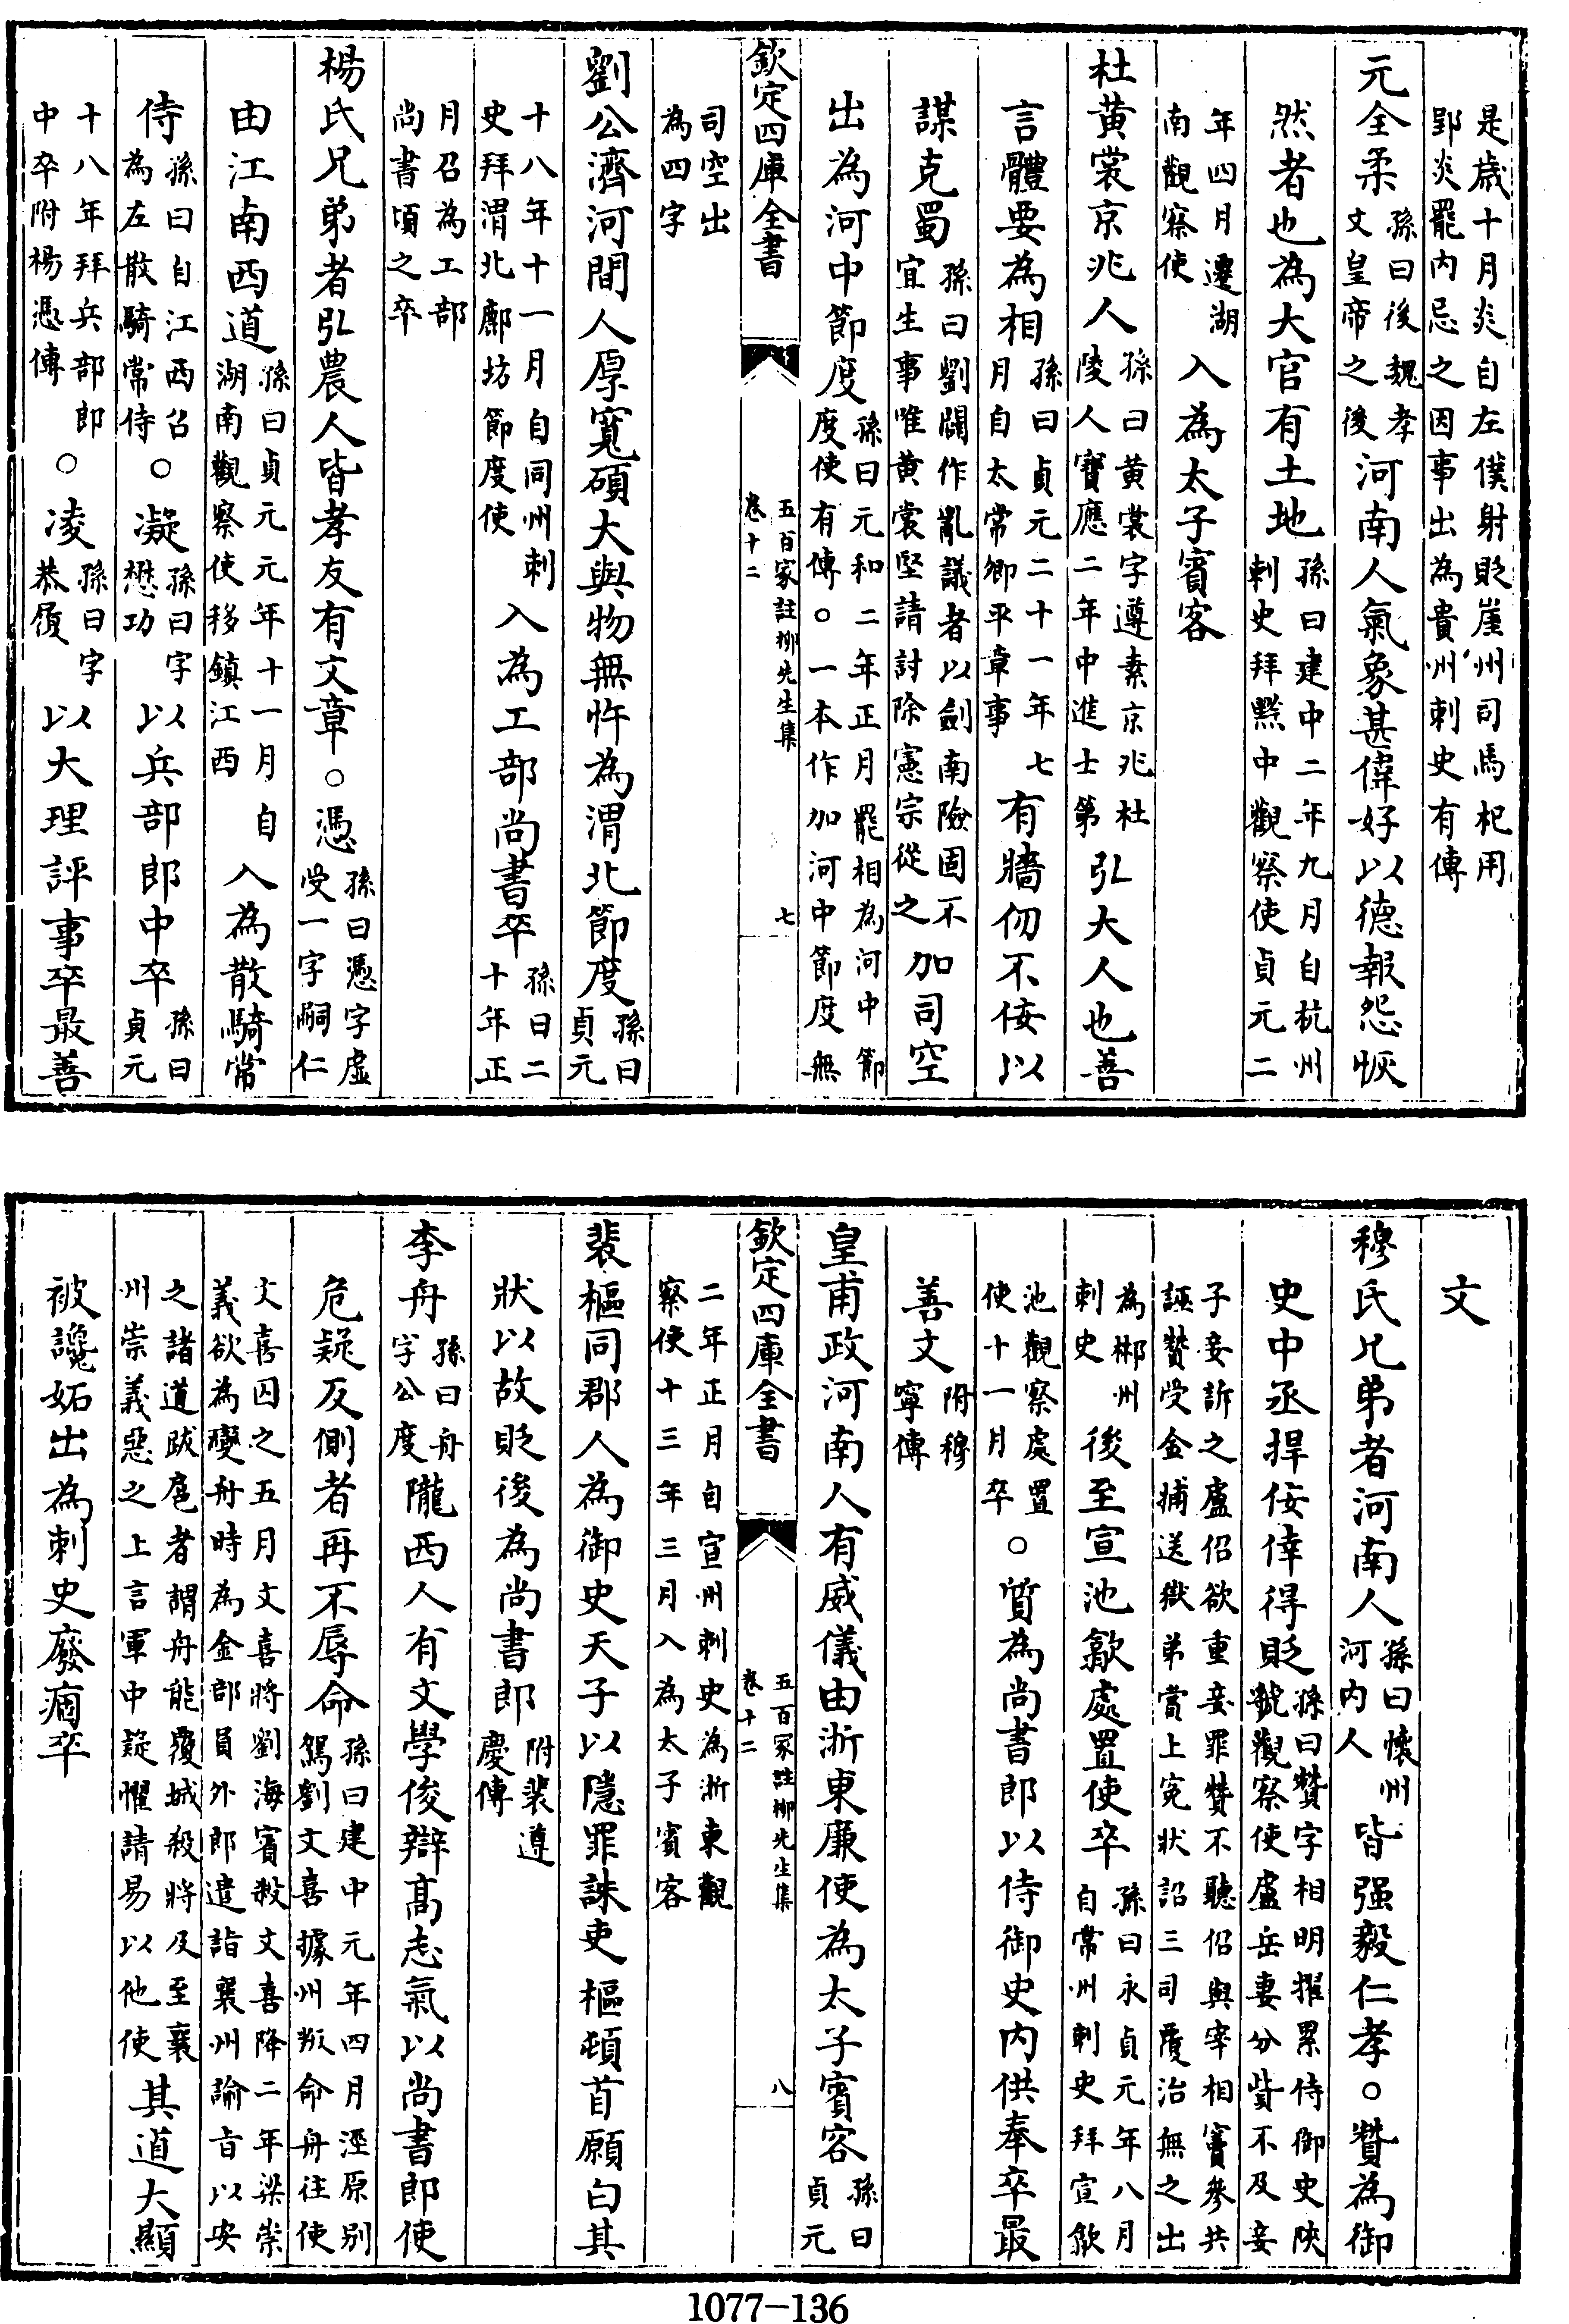 是歳十月炎自左僕射貶崖州司馬杞用
郢炎罷内忌之因事出為貴州刺史有傳
元全柔孫曰後魏孝文皇帝之後河南人氣象甚偉好以德報怨恢
然者也為大官有土地孫曰建中二年九月自杭州刺史拜黔中觀察使貞元二
年四月遷湖南觀察使入為太子賓客
杜黄裳京兆人孫曰黄裳字遵素京兆杜陵人寶應二年中進士第弘大人也善
言體要為相孫曰貞元二十一年七月自太常卿平章事有牆仞不佞以
謀克蜀孫曰劉闢作亂議者以劍南險固不宜生事唯黄裳堅請討除憲宗從之加司空
出為河中節度孫曰元和二年正月罷相為河中節度使有傳○一本作加河中節度無
欽定四庫全書
五百家註柳先生集
卷十二
七
司空出為四字
劉公濟河間人厚寬碩大與物無忤為渭北節度孫曰貞元
十八年十一月自同州刺史拜渭北鄜坊節度使入為工部尚書卒孫曰二十年正
月召為工部尚書頃之卒
楊氏兄弟者弘農人皆孝友有文章○憑孫曰憑字虛受一字嗣仁
由江南西道孫曰貞元元年十一月自湖南觀察使移鎮江西入為散騎常
侍孫曰自江西召為左散騎常侍○凝孫曰字懋功以兵部郎中卒孫曰貞元
十八年拜兵部郎中卒附楊憑傳○凌孫曰字恭履以大理評事卒最善
文
穆氏兄弟者河南人孫曰懷州河内人皆强毅仁孝○贊為御
史中丞捍佞倖得貶孫曰贊字相明擢累侍御史陝虢觀察使盧岳妻分貲不及妾
子妾訴之盧佋欲重妾罪贊不聽佋與宰相竇參共誣贊受金捕送獄弟賞上寃狀詔三司覆治無之出
為郴州刺史後至宣池歙處置使卒孫曰永貞元年八月自常州刺史拜宣歙
池觀察處置使十一月卒○質為尚書郎以侍御史内供奉卒最
善文附穆寧傳
皇甫政河南人有威儀由浙東廉使為太子賓客孫曰貞元
欽定四庫全書
五百家註柳先生集
卷十二
八
二年正月自宣州刺史為浙東觀察使十三年三月入為太子賓客
裴樞同郡人為御史天子以隱罪誅吏樞頓首願白其
狀以故貶後為尚書郎附裴遵慶傳
李舟孫曰舟字公度隴西人有文學俊辯高志氣以尚書郎使
危疑反側者再不辱命孫曰建中元年四月涇原别駕劉文喜據州叛命舟往使
文喜囚之五月文喜將劉海賓殺文喜降二年梁崇義欲為變舟時為金部員外郎遣詣襄州諭旨以安
之諸道跋扈者謂舟能覆城殺將及至襄州崇義惡之上言軍中疑懼請易以他使其道大顯
被讒妬出為刺史廢痼卒
1077-136